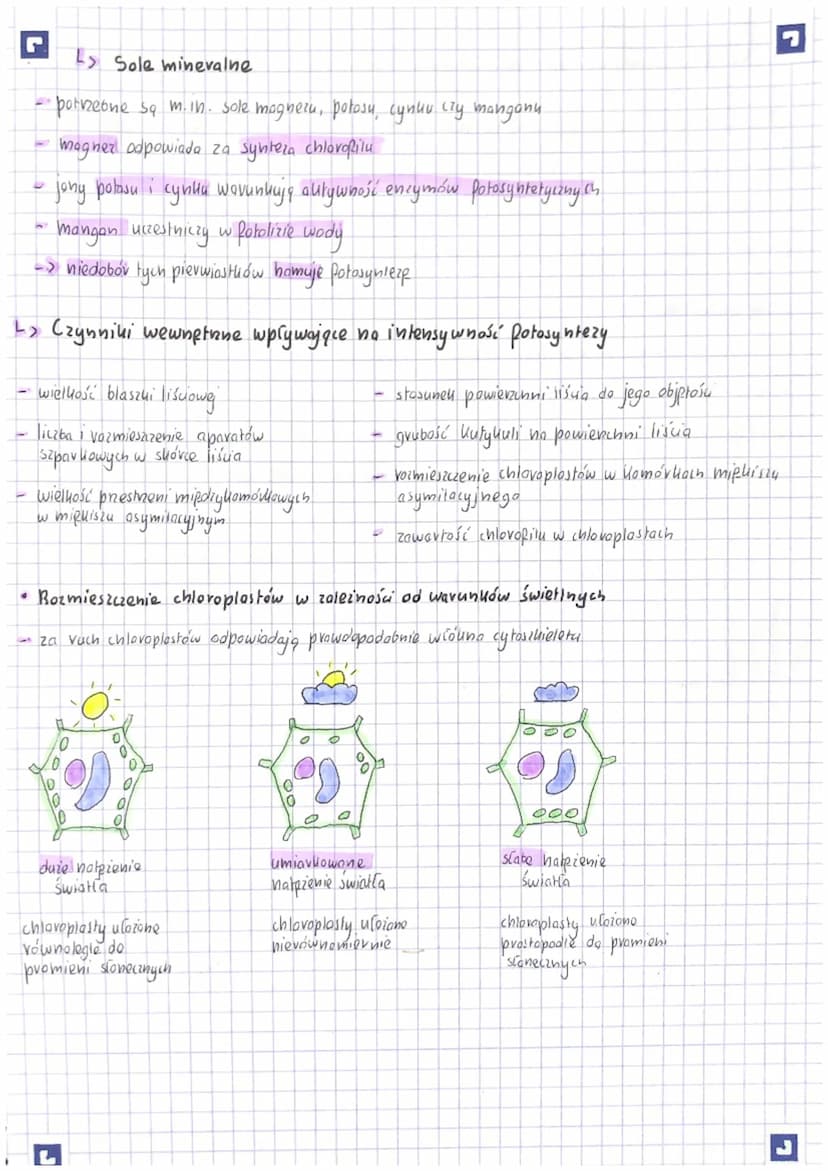 ↳ Sole mineralne
- potrzebne są m.in. sole magnezu, potasu, cynku czy manganu
- magnez odpowiada za synteza chlorofilu
- jony potasu i cynku warunkują aktywność enzymów fotosyntetycznych
- mangan uczestniczy w fotolizie wody
-> niedobór tych pierwiastków hamuje fotosyntezę
↳ Czynniki wewnętrzne wpływające na intensywność fotosyntezy
- wielkość blaszki liściowej
- liczba i rozmieszczenie aparatów
szparkowych w skórce liścia
- wielkość przestrzeni międzykomórkowych
w miękiszu asymilacyjnym
- stosunek powierzchni liścia do jego objętości
- grubość kutykuli na powierzchni liścia
- rozmieszczenie chloroplastów w komórkach miękiszu
asymilacyjnego
- zawartość chlorofilu w chloroplastach
• Rozmieszczenie chloroplastów w zależności od warunków świetlnych
- za ruch chloroplastów odpowiadają prawdopodobnie włókna cytoszkieletu
duże natężenie
światła
chloroplasty ułożone
równolegle do
promieni słonecznych
umiarkowane
natężenie światła
chloroplasty ułożone
nierównomiernie
słabe natężenie
światła
chloroplasty ułożone
prostopadle do promieni
słonecznych